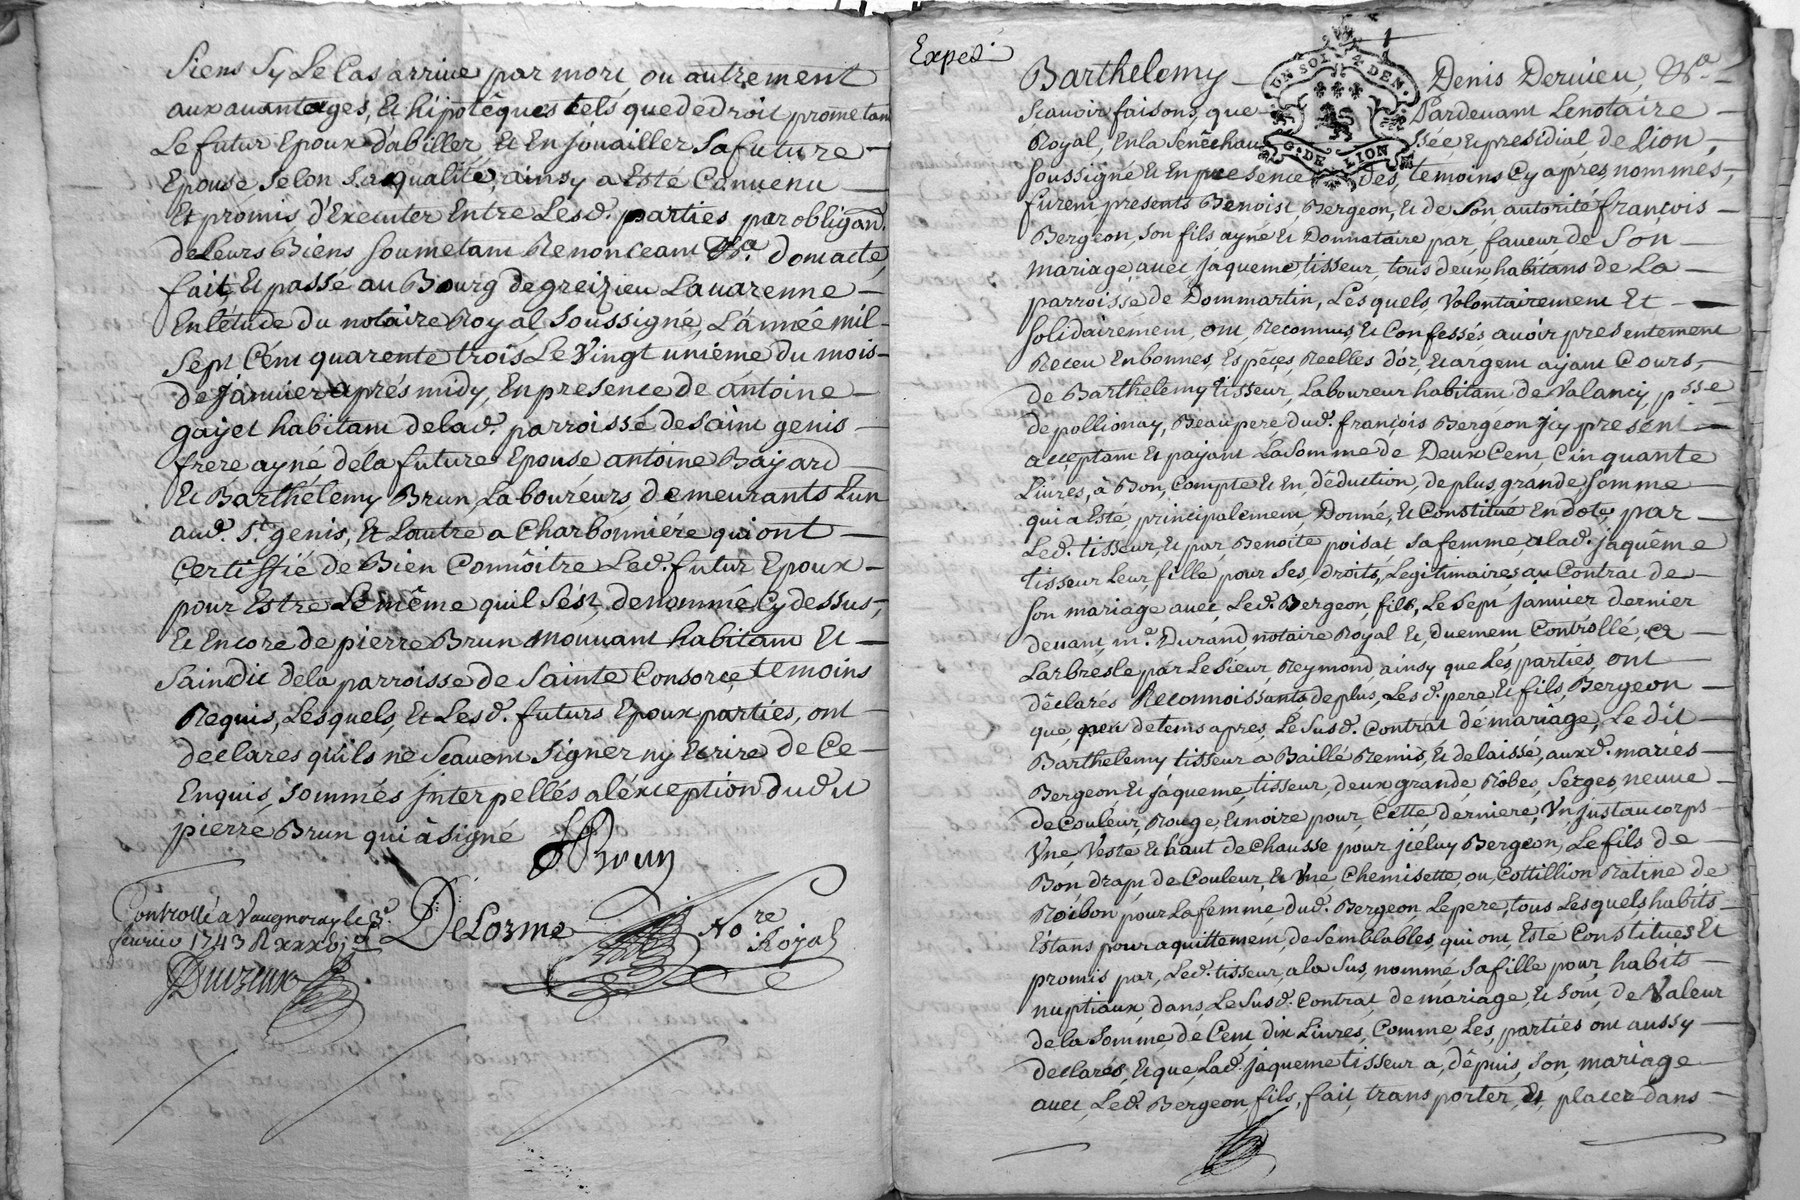 siens sy le cas arrive par mort ou autrement
aux avantages, et hipotêques tels que de droit prometant
le futur Epoux d'abiller, et Enjouailler sa future
Epouse selon sa qualité, ainsy a Esté Convenu
Et promis d'Executer Entre lesd. parties par obligaõn.
de leurs Biens soumetant Renonceant &a. dont acte,
fait, et passé au Bourg de greizieu Lavarenne
En l'étude du notaire Royal soussigné, L'année mil
sept Cent quarente trois Le Vingt unième du mois
de janvier aprés midy, En presence de antoine
gayet habitant delad. parroisse de saint genis
frere ayné de la future Epouse antoine Bajard
Et Barthélemy Brun, Laboureurs, demeurants l'un
aud. st. genis, Et L'autre a Charbonniére qui ont
Certiffié de Bien Connôitre Led. futur Epoux
pour Estre Le même quil s'est dénommé Cy dessus,
Et Encore de pierre Brun mouvant habitant Et
saindic de la parroisse de sainte Consorce temoins
Requis, Lesquels, Et Lesd. futurs Epoux parties, ont
declares quils ne scavent signer ny Ecrire de Ce
Enquis, sommés interpellés a l'éxception dudit
pierre Brun qui à signé
Brun
Controllé a Vaugneray le 3e.
fevrier 1743
DeLorme No.re Royal
Exped.
1
UN SOL 4 DEN.
G. DE LION
Barthelemy Denis Dervieu, &a.
scavoir faisons, que Pardevant Le notaire
Royal, En la senêchaussée et presidial de Lion,
soussigné Et En presence des, temoins Cy aprés nommés,
furent presents Benoist Bergeon, Et de son autorité françois
Bergeon, son fils ayné Et Donnataire par faveur de son
mariage avec jaqueme tisseur, tous deux habitans de La
parroisse de Dommartin, Lesquels Volontairement Et
solidairement, ont Reconnus, Et Confessés avoir presentement
Receu En bonnes, Espêçes, Reelles d'or, Et argent ayant Cours,
de Barthelemy tisseur, Laboureur habitant de Valancy, psse
de pollionay, Beaupere dud. françois Bergeon jcy present
acceptant Et payant La somme de Deux Cent, Cinquante
Livres, à Bon, Compte Et En, déduction, de plus grande somme
qui a Esté, principalement, Donné, Et Constitué En dote, par
Led. tisseur, Et par Benoite poisat sa femme, a lad. jaquême
tisseur Leur fille pour ses droits, Legitimaires au Contrat de
son mariage avec, Led. Bergeon, fils, Le sept janvier dernier
devant, me. Durand, notaire Royal Et, duement, Controllé, a
Larbresle par Le sieur, Reymond, ainsy que Les, parties, ont
déclarés Reconnoissants de plus, Les d. pere Et fils, Bergeon
que peu de tems apres Le susd. Contrat dé mariage, Le dit
Barthelemy tisseur a Baillé Remis, Et delaissé, auxd. mariés
Bergeon Et jaqueme, tisseur, deux grande Robes, serges, neuve
de Couleur, Rouge, Et noire pour, Cette, derniere, Vn, justaucorps
Vne, Veste Et haut de chausse pour jceluy Bergeon, Le fils de
Bon drap, de Couleur, Et Vne Chemisette, ou Cottillion Ratine de
pour La femme dud. Bergeon Le pere, tous Lesquels habits
Estans pour aquittement, de semblables, qui ont Esté Constitués Et
promis par, Led. tisseur, a la sus, nommé, sa fille pour, habits
nuptiaux, dans, Le susd. Contrat, de mariage, Et sont, de Valeur
de la somme, de Cent, dix Livres, Comme, Les, parties ont aussy
declarés, Et que, Lad. jaqueme tisseur a, dépuis, son, mariage
avec, Led. Bergeon, fils, fait, transporter, Et, placer dans